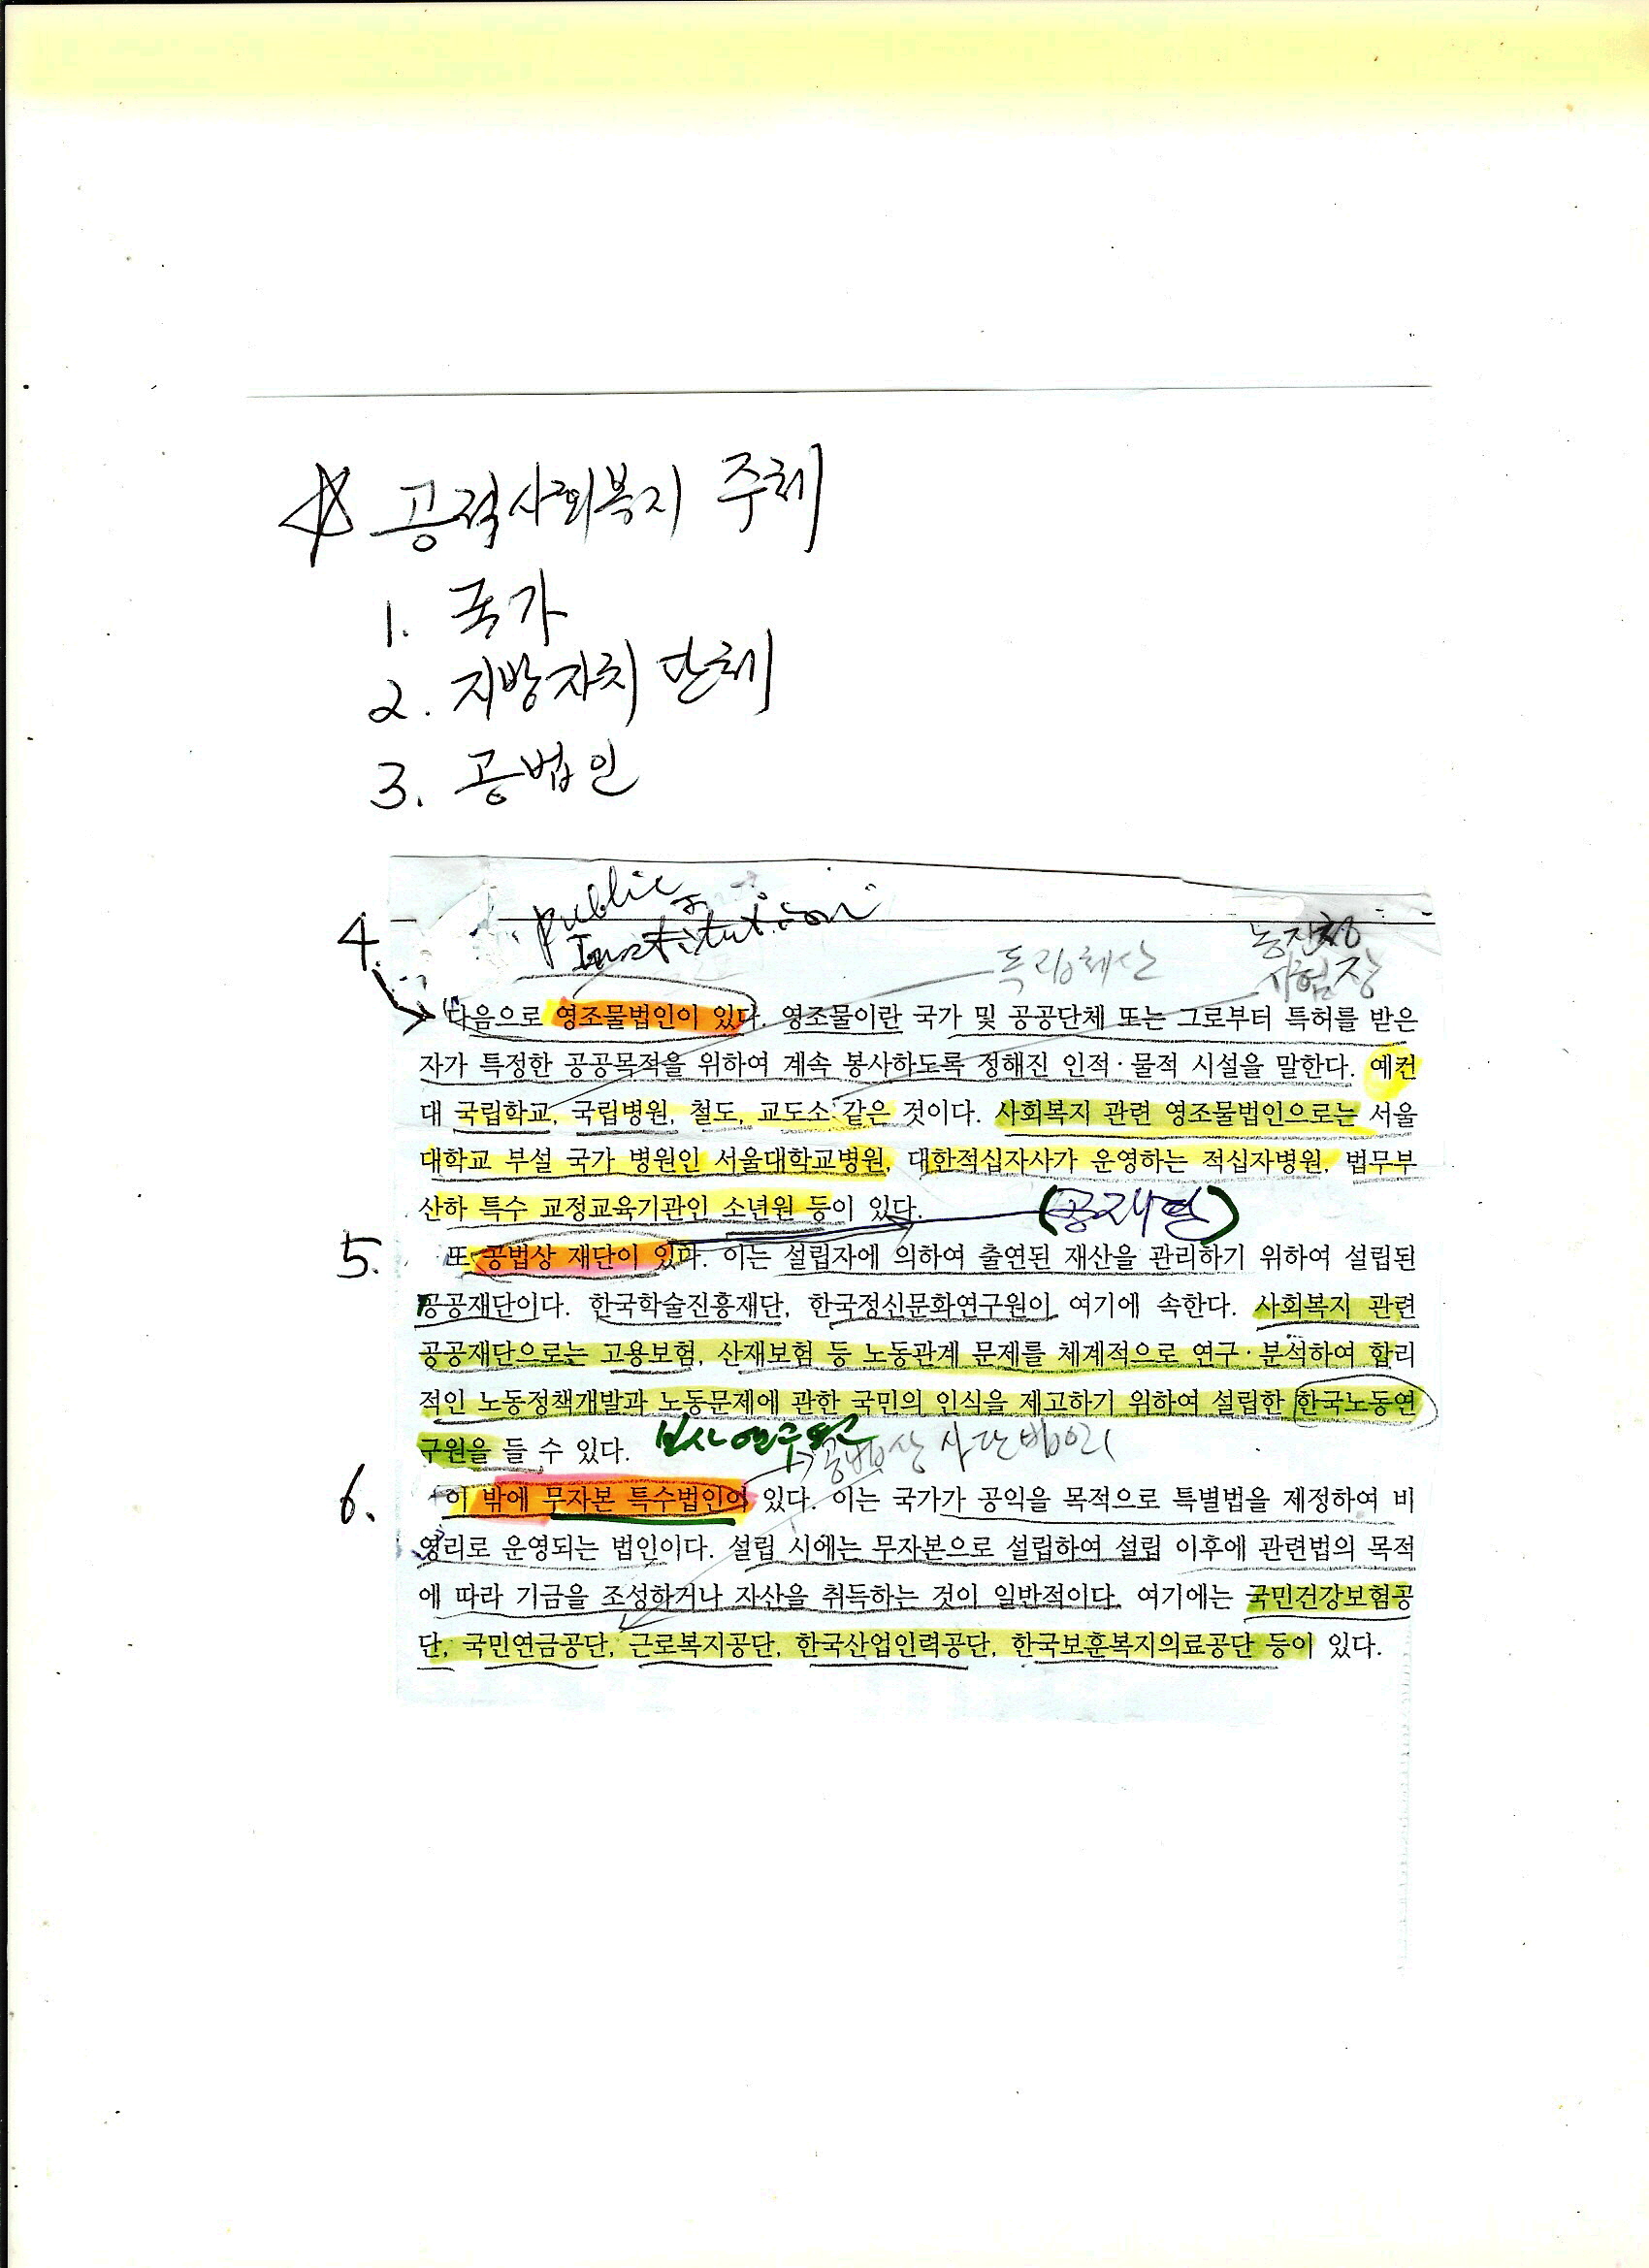 공적사회복지 주체
1. 국가
2. 지방자치 단체
3. 공법인
4.
"Public Institution"
독립채산
농진청
시험장
다음으로 영조물법인이 있다. 영조물이란 국가 및 공공단체 또는 그로부터 특허를 받은
자가 특정한 공공목적을 위하여 계속 봉사하도록 정해진 인적·물적 시설을 말한다. 예컨
대 국립학교, 국립병원, 철도, 교도소 같은 것이다. 사회복지 관련 영조물법인으로는 서울
대학교 부설 국가 병원인 서울대학교병원, 대한적십자사가 운영하는 적십자병원, 법무부
산하 특수 교정교육기관인 소년원 등이 있다.
5.
또 공법상 재단이 있다. 이는 설립자에 의하여 출연된 재산을 관리하기 위하여 설립된
공공재단이다. 한국학술진흥재단, 한국정신문화연구원이 여기에 속한다. 사회복지 관련
공공재단으로는 고용보험, 산재보험 등 노동관계 문제를 체계적으로 연구·분석하여 합리
적인 노동정책개발과 노동문제에 관한 국민의 인식을 제고하기 위하여 설립한 한국노동연
구원을 들 수 있다.
보사연구원
공법상 사단법인
6.
이 밖에 무자본 특수법인이 있다. 이는 국가가 공익을 목적으로 특별법을 제정하여 비
영리로 운영되는 법인이다. 설립 시에는 무자본으로 설립하여 설립 이후에 관련법의 목적
에 따라 기금을 조성하거나 자산을 취득하는 것이 일반적이다. 여기에는 국민건강보험공
단, 국민연금공단, 근로복지공단, 한국산업인력공단, 한국보훈복지의료공단 등이 있다.